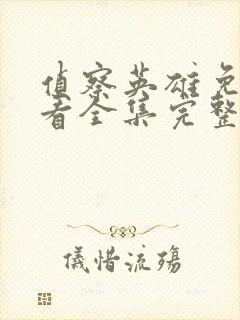 侦察英雄免
看全集完整
儀惜流殤